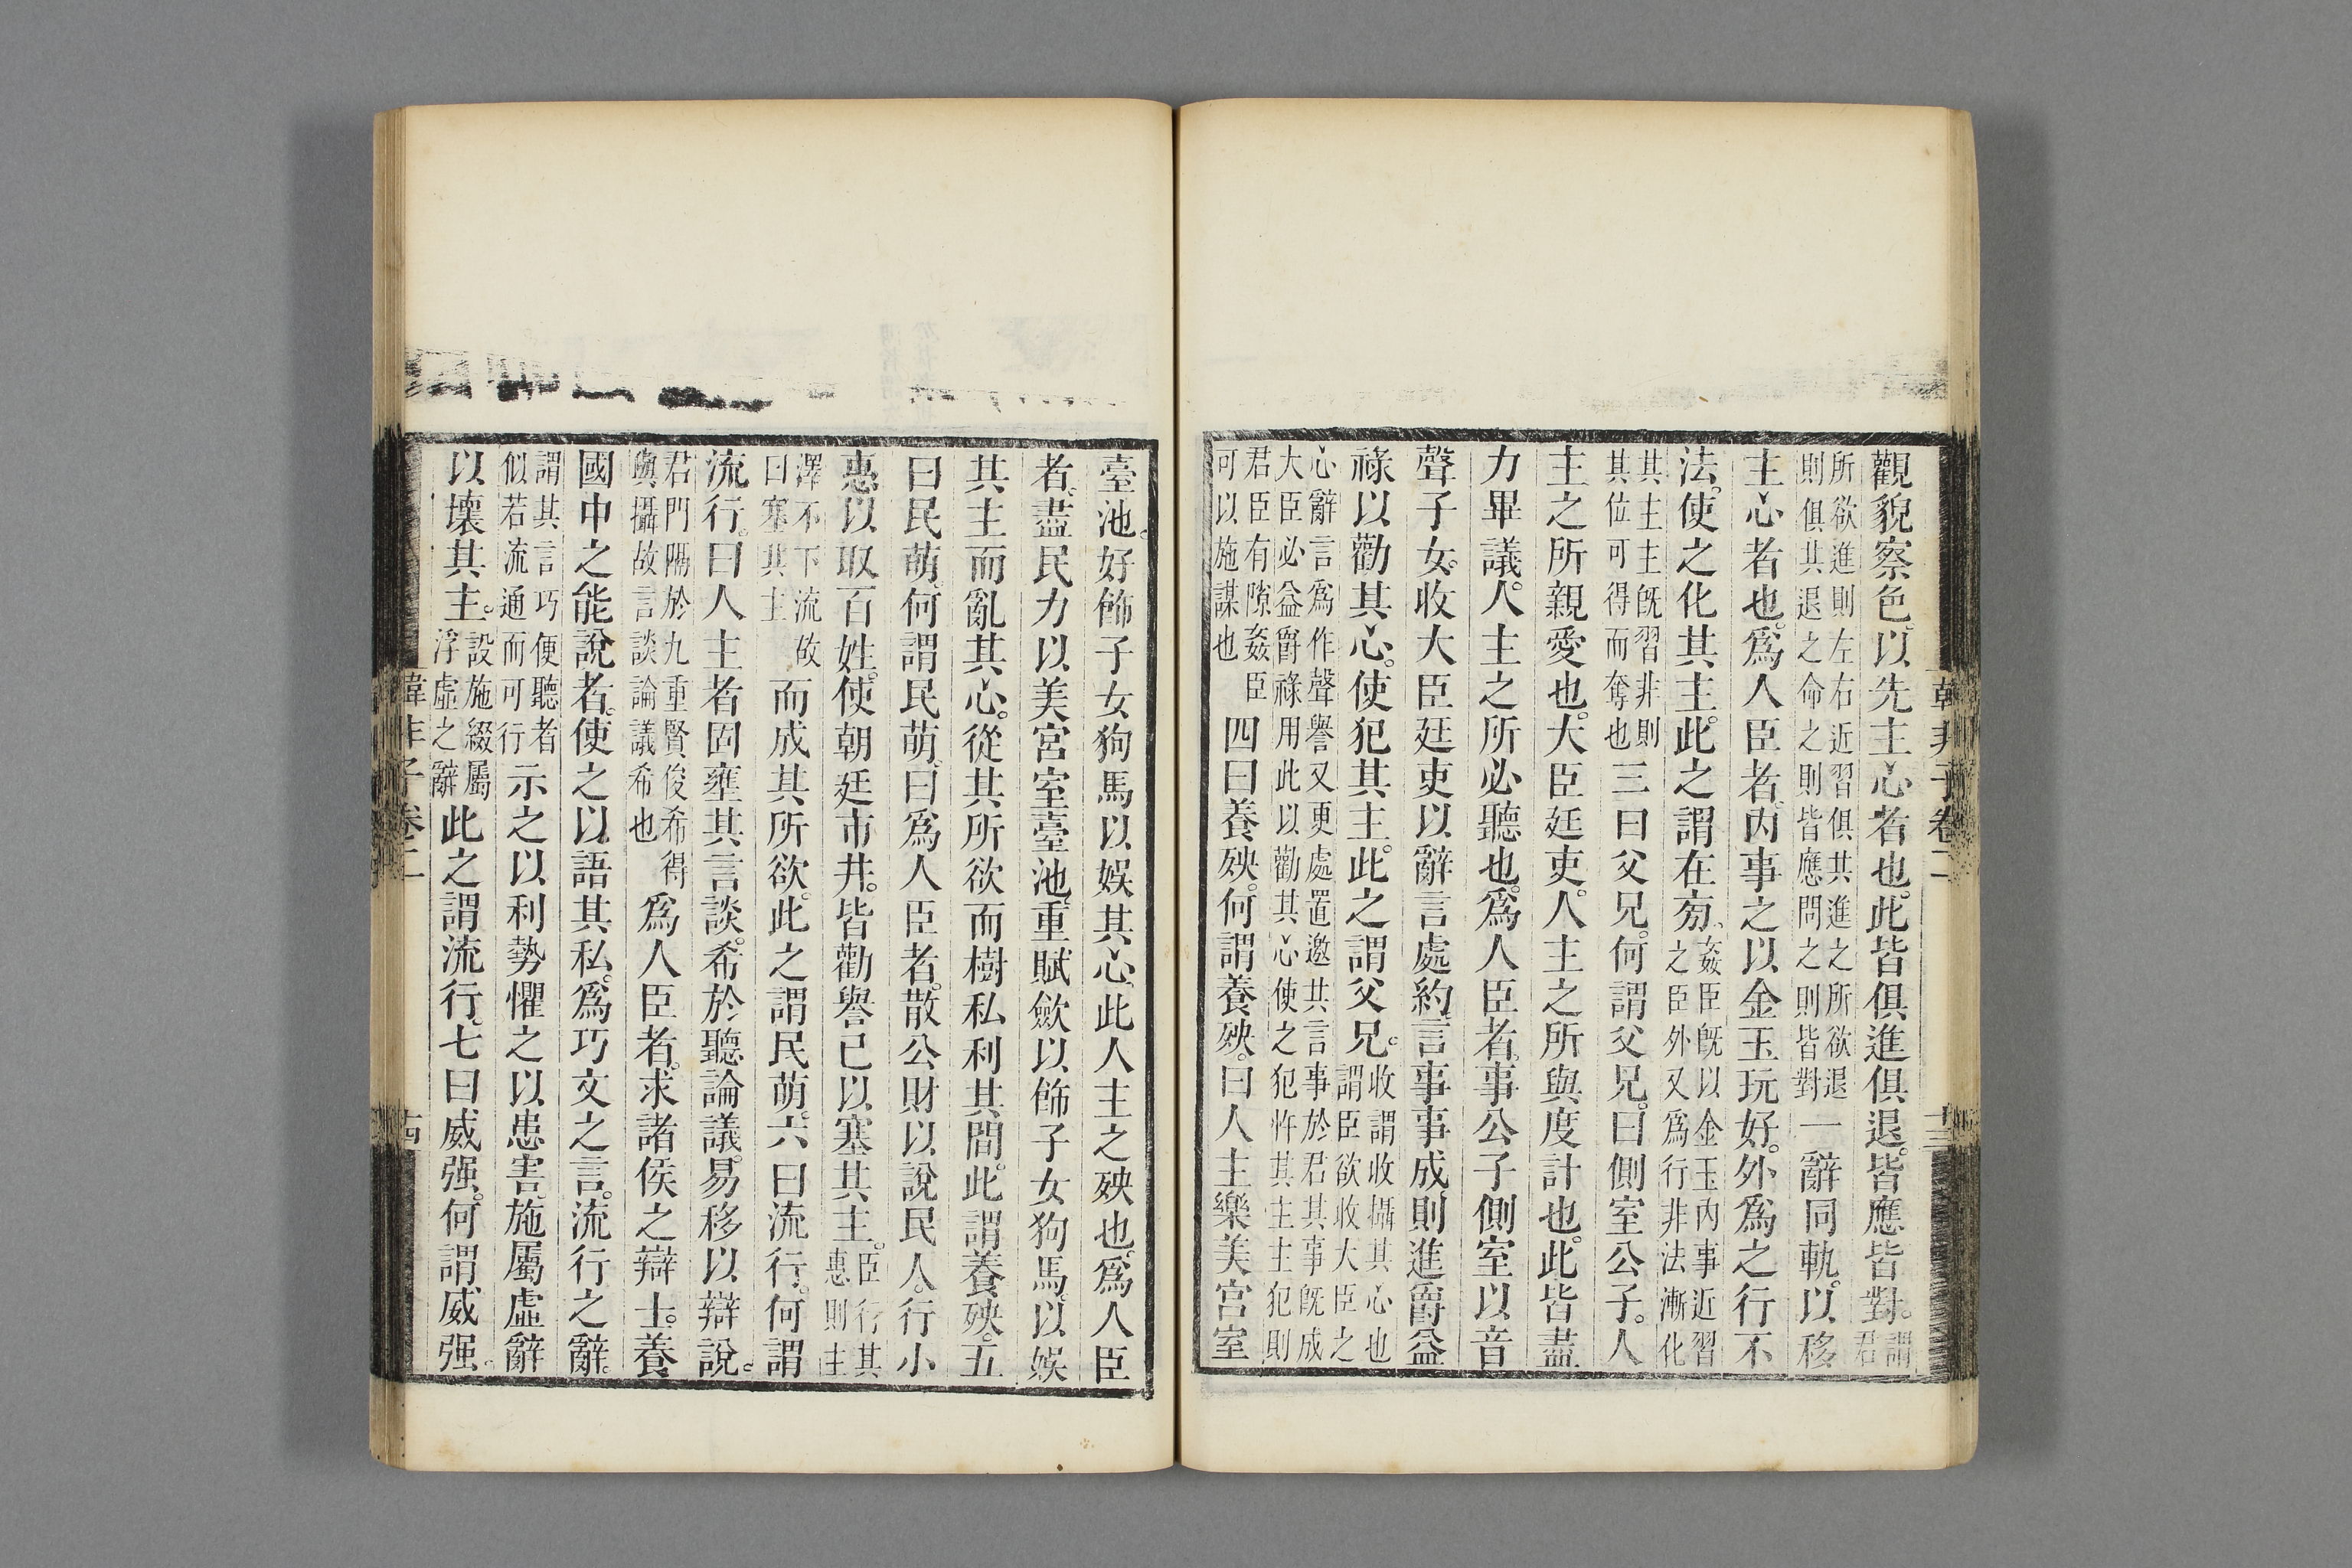 韓非子卷二
十三
觀貌察色。以先主心者也。此皆俱進俱退。皆應皆對。謂君
所欲進則左右近習俱其進之所欲退則俱其退之命之則皆應問之則皆對一辭同軌。以移
主心者也。爲人臣者。內事之以金玉玩好。外爲之行不
法。使之化其主。此之謂在旁。姦臣既以金玉內事近習之臣外又爲行非法漸化
其主主既習非則其位可得而奪也三曰父兄。何謂父兄。曰側室公子。人
主之所親愛也。大臣廷吏。人主之所與度計也。此皆盡
力畢議。人主之所必聽也。爲人臣者。事公子側室以音
聲子女。收大臣廷吏以辭言處約言事事成則進爵益
祿以勸其心。使犯其主。此之謂父兄。收謂收攝其心也謂臣欲收大臣之
心辭言爲作聲譽又更處置邀其言事於君其事既成大臣必益爵祿用此以勸其心使之犯忤其主主犯則
君臣有隙姦臣可以施謀也四曰養殃。何謂養殃。曰人主樂美宮室
臺池。好飾子女狗馬以娛其心。此人主之殃也。爲人臣
者。盡民力以美宮室臺池。重賦斂以飾子女狗馬。以娛
其主而亂其心。從其所欲而樹私利其間。此謂養殃。五
曰民萌。何謂民萌。曰爲人臣者。散公財以說民人。行小
惠以取百姓。使朝廷市井。皆勸譽己以塞其主。臣行其惠則主
澤不下流故曰塞其主而成其所欲。此之謂民萌。六曰流行。何謂
流行。曰人主者固壅其言談。希於聽論議。易移以辯說。
君門隔於九重賢俊希得與攝故言談論議希也爲人臣者。求諸侯之辯士。養
國中之能說者。使之以語其私。爲巧文之言。流行之辭。
謂其言巧便聽者似若流通而可行示之以利勢懼之以患害。施屬虛辭
以壞其主。設施綴屬浮虛之辭此之謂流行。七曰威强。何謂威强。
韓非子卷二
十四